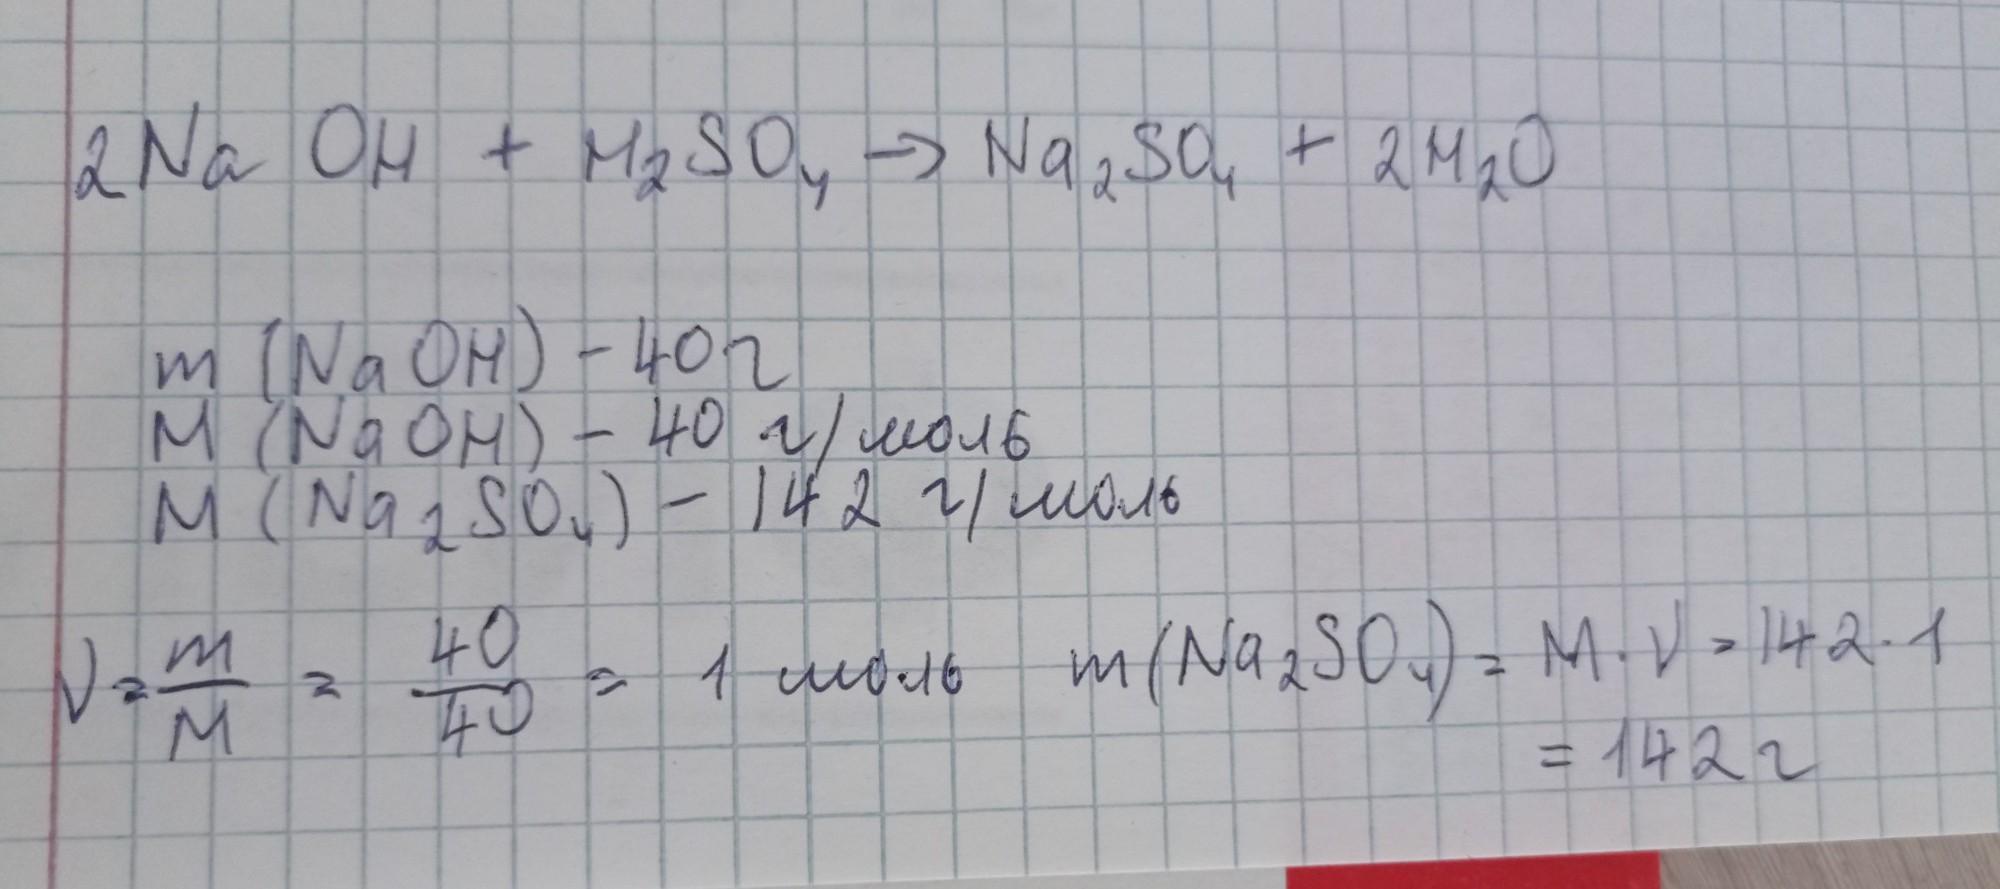 2Na OH + H₂SO₄ → Na₂SO₄ + 2H₂O
m (NaOH) - 40г
M (NaOH) - 40 г/моль
M (Na₂SO₄) - 142 г/моль
V = m/M = 40/40 = 1 моль m(Na₂SO₄) = M · V = 142 · 1
= 142 г